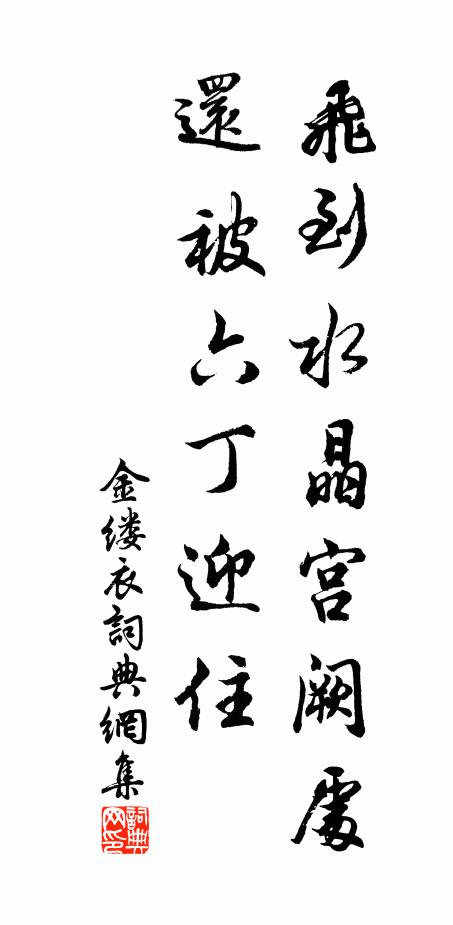 飛到水晶宮闕處
還被六丁迎住
金缕衣詞典網集
詞典网印